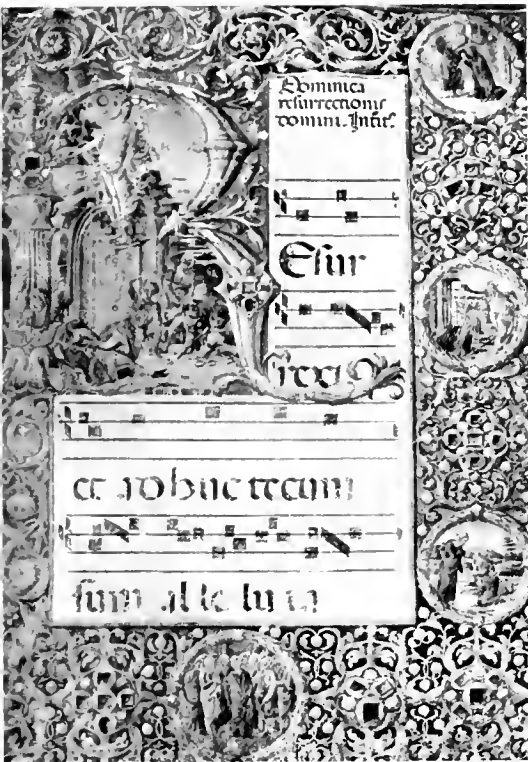 Dominica
resurrectionis
domini. Introit.
R
Esur
rexi
et adhuc tecum
sum al le lu ia